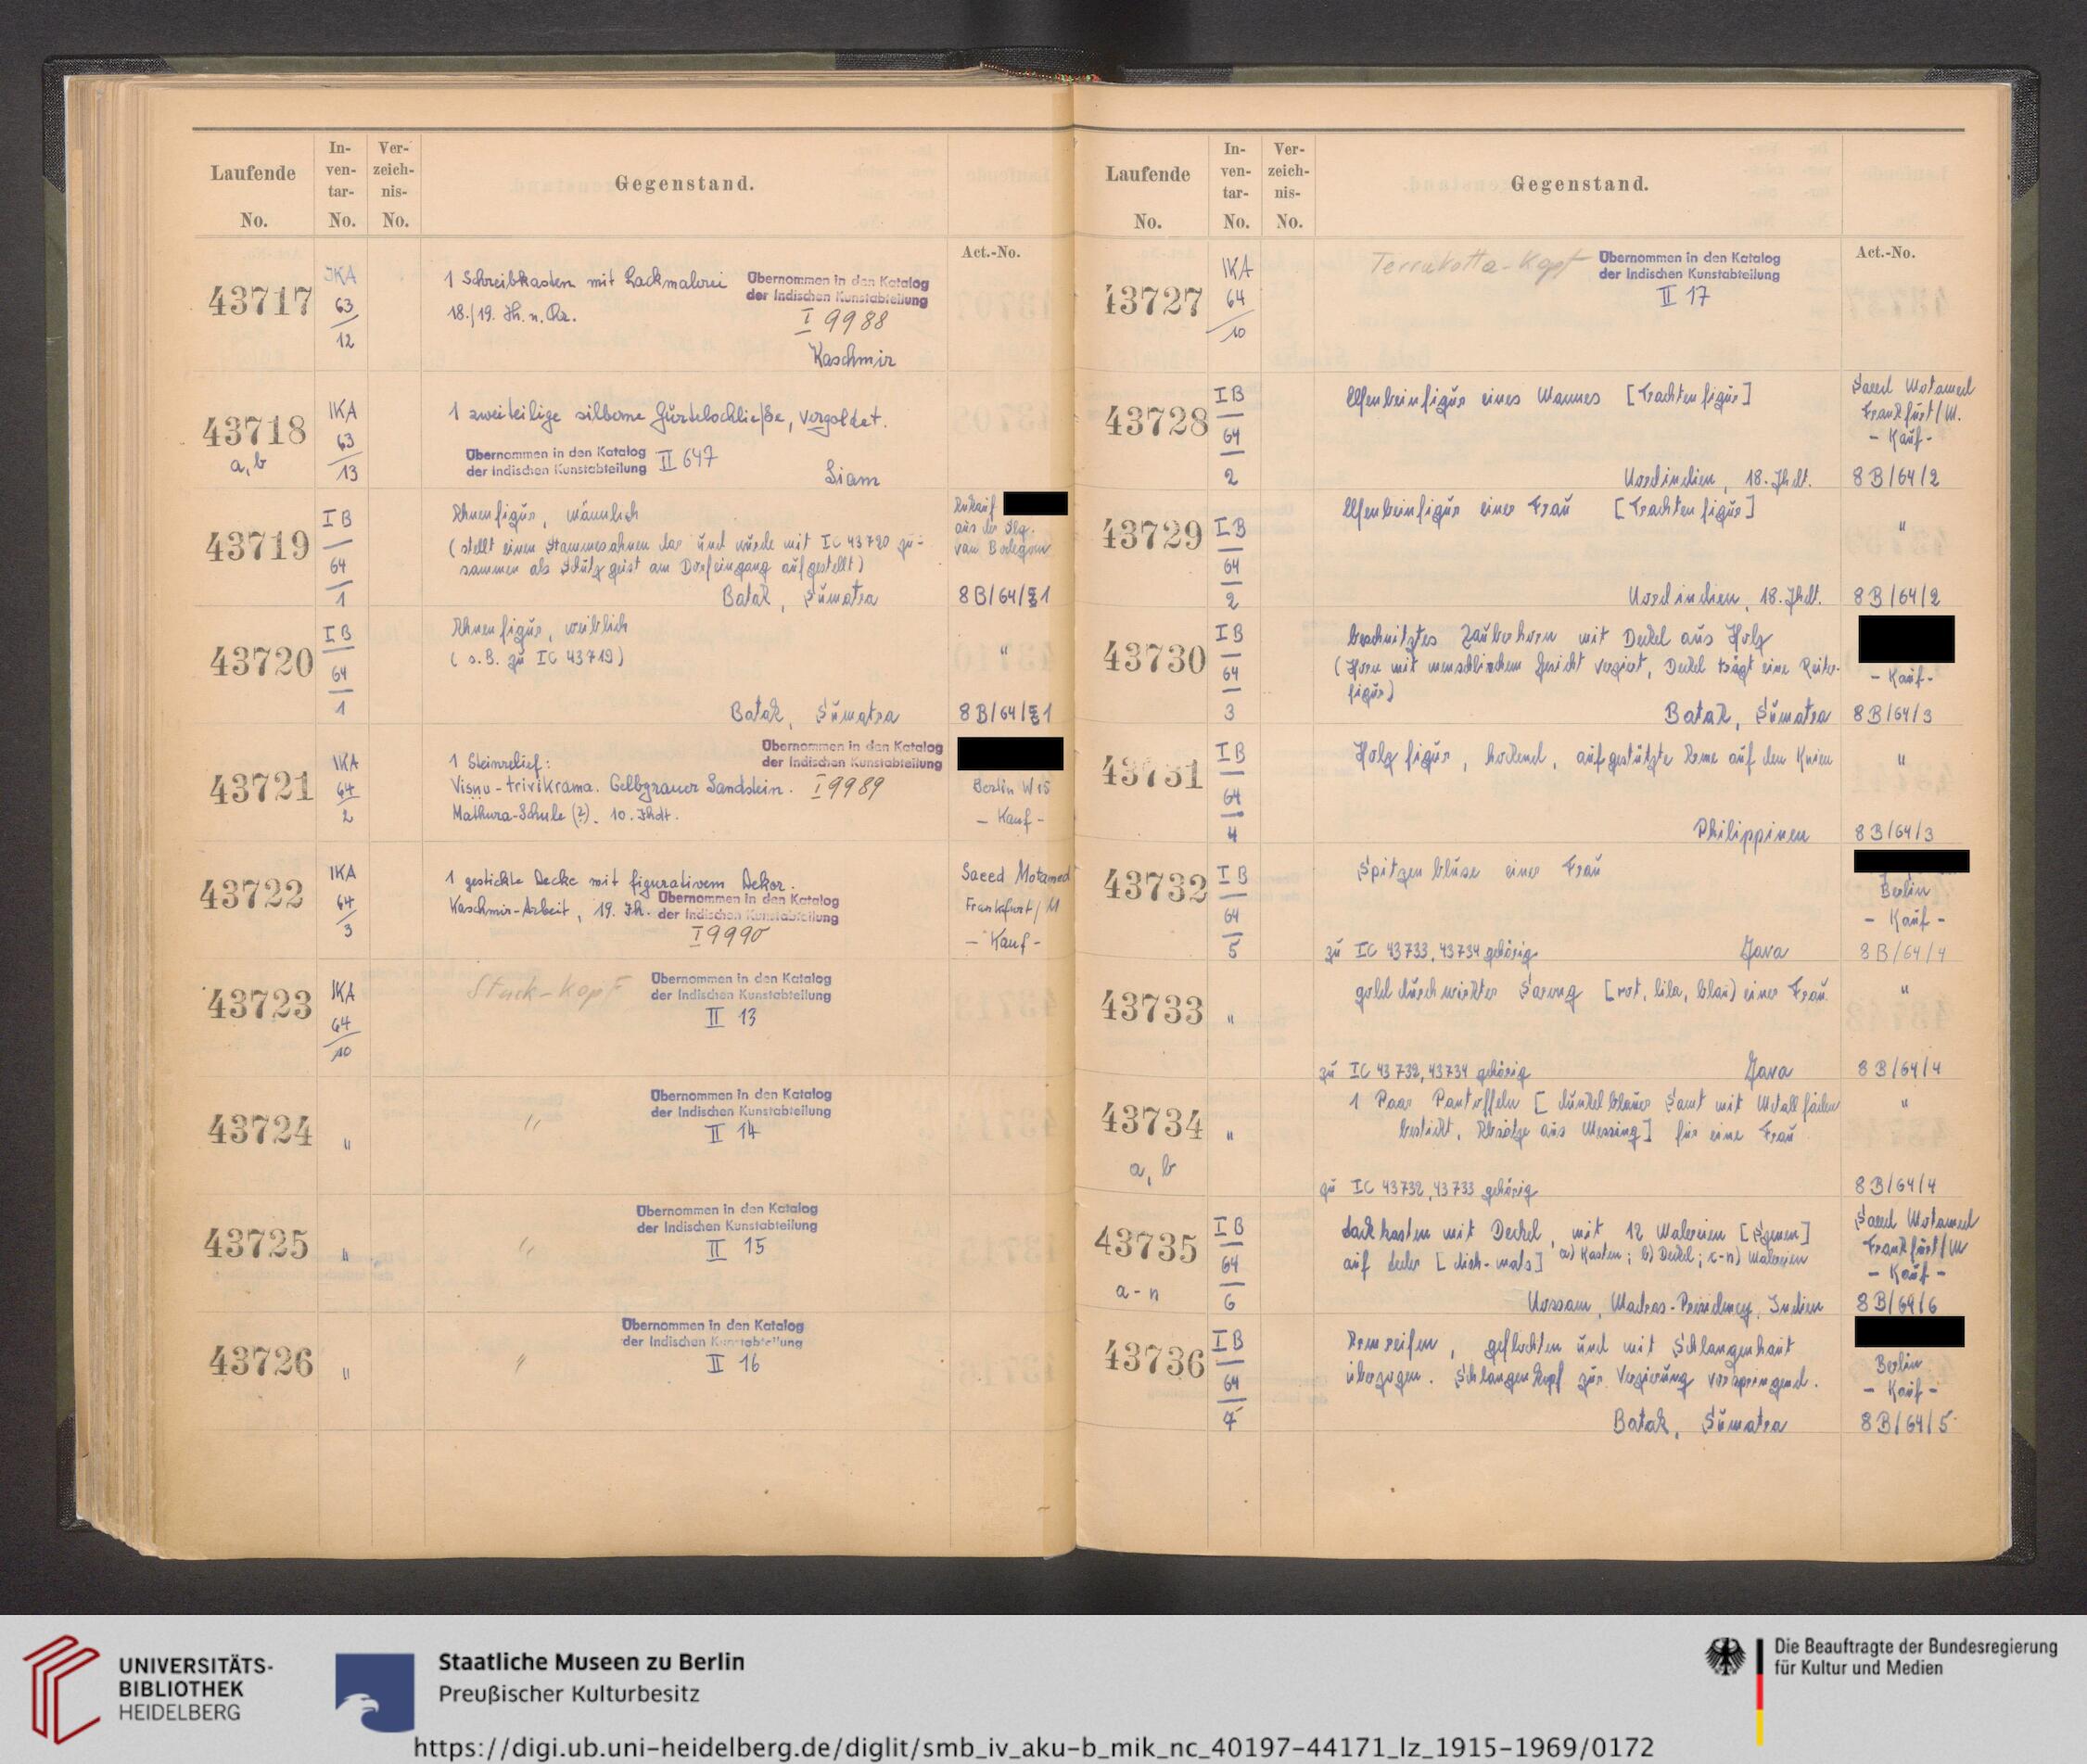 Laufende No.
In-ven-tar-No.
Ver-zeich-nis-No.
Gegenstand.
Act.-No.
43717
IKA 63/12
1 Schreibkasten mit Lackmalerei
18./19. Jh. n. Chr.
Übernommen in den Katalog
der Indischen Kunstabteilung
I 9988
Kaschmir
43718
a, b
IKA 63/13
1 zweiteilige silberne Gürtelschließe, vergoldet.
Übernommen in den Katalog
der Indischen Kunstabteilung
II 647
Siam
43719
I B 64 1
Ahnenfigur, männlich
(stellt einen Stammesahnen dar und wurde mit IC 43720 zu-
sammen als Schutzgeist am Dorfeingang aufgestellt)
Batak, Sumatra
Ankauf
aus der Slg.
van
8 B/64/1
43720
I B 64 1
Ahnenfigur, weiblich
(s. B. zu IC 43719)
Batak, Sumatra
"
8 B/64/1
43721
IKA 64 2
1 Steinrelief:
Visnu-trivikrama. Gelbgrauer Sandstein.
Mathura-Schule (?). 10. Jhdt.
Übernommen in den Katalog
der Indischen Kunstabteilung
I 9989
Berlin W 15
- Kauf -
43722
IKA 64/3
1 gestickte Decke mit figurativem Dekor.
Kaschmir-Arbeit, 19. Jh.
Übernommen in den Katalog
der Indischen Kunstabteilung
I 9990
Saeed Motamed
Frankfurt / M
- Kauf -
43723
IKA 64/10
Stuck-Kopf
Übernommen in den Katalog
der Indischen Kunstabteilung
II 13
43724
"
"
Übernommen in den Katalog
der Indischen Kunstabteilung
II 14
43725
"
"
Übernommen in den Katalog
der Indischen Kunstabteilung
II 15
43726
"
"
Übernommen in den Katalog
der Indischen Kunstabteilung
II 16
Laufende No.
In-ven-tar-No.
Ver-zeich-nis-No.
Gegenstand.
Act.-No.
43727
IKA 64/10
Terrakotta-Kopf
Übernommen in den Katalog
der Indischen Kunstabteilung
II 17
43728
I B 64 2
Elfenbeinfigur eines Mannes [Trachtenfigur]
Nordindien, 18. Jhdt.
Saeed Motamed
Frankfurt / M.
- Kauf -
8 B/64/2
43729
I B 64 2
Elfenbeinfigur einer Frau [Trachtenfigur]
Nordindien, 18. Jhdt.
"
8 B/64/2
43730
I B 64 3
beschnitztes Zauberhorn mit Deckel aus Holz
(Horn mit menschlichem Gesicht verziert, Deckel trägt eine Reiter-
figur)
Batak, Sumatra
- Kauf -
8 B/64/3
43731
I B 64 4
Holzfigur, hockend, aufgestützte Arme auf den Knien
Philippinen
"
8 B/64/3
43732
I B 64 5
Spitzenbluse einer Frau
zu IC 43733, 43734 gehörig
Java
Berlin
- Kauf -
8 B/64/4
43733
"
golddurchwirkter Sarong [rot, lila, blau) einer Frau.
zu IC 43732, 43734 gehörig
Java
"
8 B/64/4
43734
a, b
"
1 Paar Pantoffeln [dunkelblauer Samt mit Metallfäden
bestickt, Absätze aus Messing] für eine Frau
zu IC 43732, 43733 gehörig
"
8 B/64/4
43735
a - n
I B 64 6
Lackkasten mit Deckel, mit 12 Malereien [Szenen]
auf Leder [dish-mats] a) Kasten; b) Deckel; c-n) Malereien
Nossam, Madras-Presidency, Indien
Saeed Motamed
Frankfurt / M
- Kauf -
8 B/64/6
43736
I B 64 7
Armreifen, geflochten und mit Schlangenhaut
überzogen. Schlangenkopf zur Verzierung vorspringend.
Batak, Sumatra
Berlin
- Kauf -
8 B/64/5
UNIVERSITÄTS-
BIBLIOTHEK
HEIDELBERG
Staatliche Museen zu Berlin
Preußischer Kulturbesitz
Die Beauftragte der Bundesregierung
für Kultur und Medien
https://digi.ub.uni-heidelberg.de/diglit/smb_iv_aku-b_mik_nc_40197-44171_lz_1915-1969/0172